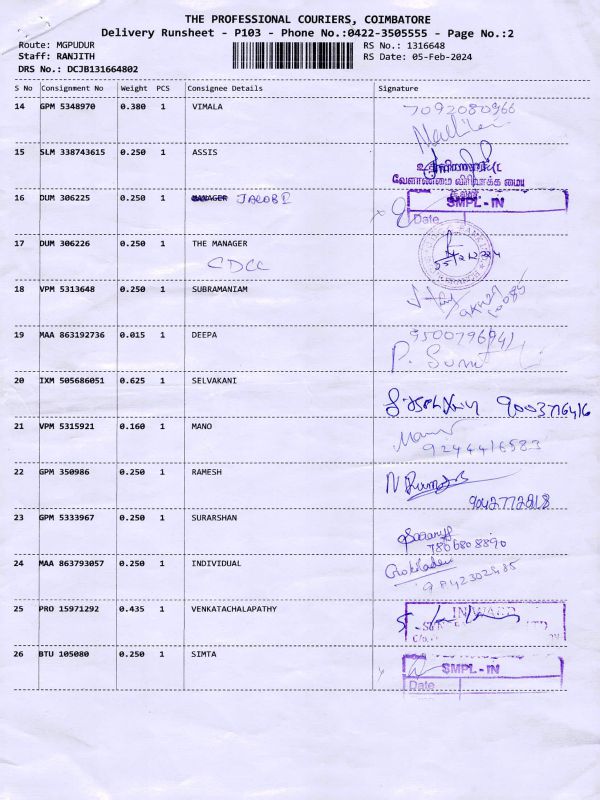 THE PROFESSIONAL COURIERS, COIMBATORE
Delivery Runsheet - P103 - Phone No.:0422-3505555 - Page No.:2
Route: MGPUDUR RS No.: 1316648
Staff: RANJITH RS Date: 05-Feb-2024
DRS No.: DCJB131664802
S No Consignment No Weight PCS Consignee Details Signature
14 GPM 5348970 0.380 1 VIMALA 7092080966
15 SLM 338743615 0.250 1 ASSIS
வேளாண்மை விரிவாக்க மைய
16 DUM 306225 0.250 1 MANAGER JACOB I SMPL-IN
Date
17 DUM 306226 0.250 1 THE MANAGER
CDCC
18 VPM 5313648 0.250 1 SUBRAMANIAM
19 MAA 863192736 0.015 1 DEEPA 9500796941
20 IXM 505686051 0.625 1 SELVAKANI 9003776416
21 VPM 5315921 0.160 1 MANO
9244416583
22 GPM 350986 0.250 1 RAMESH
9042772818
23 GPM 5333967 0.250 1 SURARSHAN
7806808890
24 MAA 863793057 0.250 1 INDIVIDUAL
9842302485
25 PRO 15971292 0.435 1 VENKATACHALAPATHY INWARD
26 BTU 105080 0.250 1 SIMTA SMPL-IN
Date